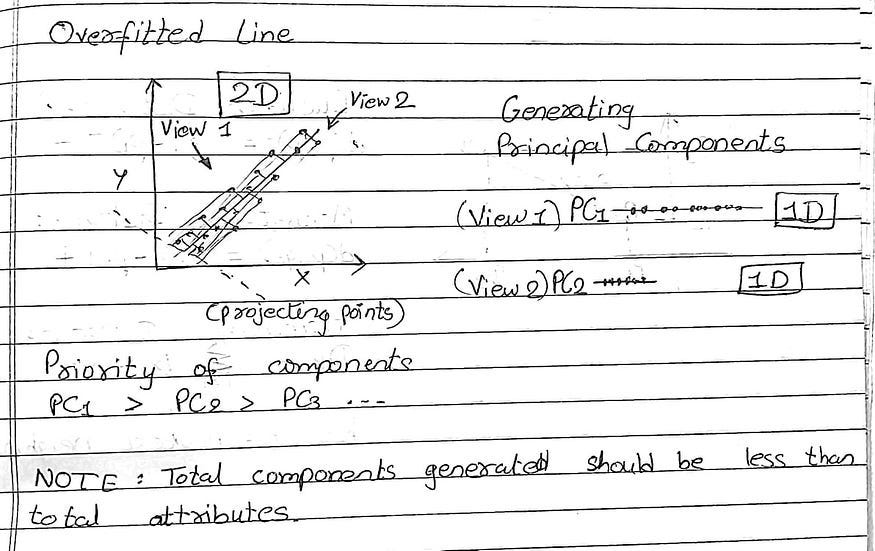 Overfitted Line
2D
View 2
View 1
Y
X
(projecting points)
Generating
Principal Components
(View 1) PC1 1D
(View 2) PC2 1D
Priority of components
PC1 > PC2 > PC3 ---
NOTE : Total components generated should be less than
total attributes.